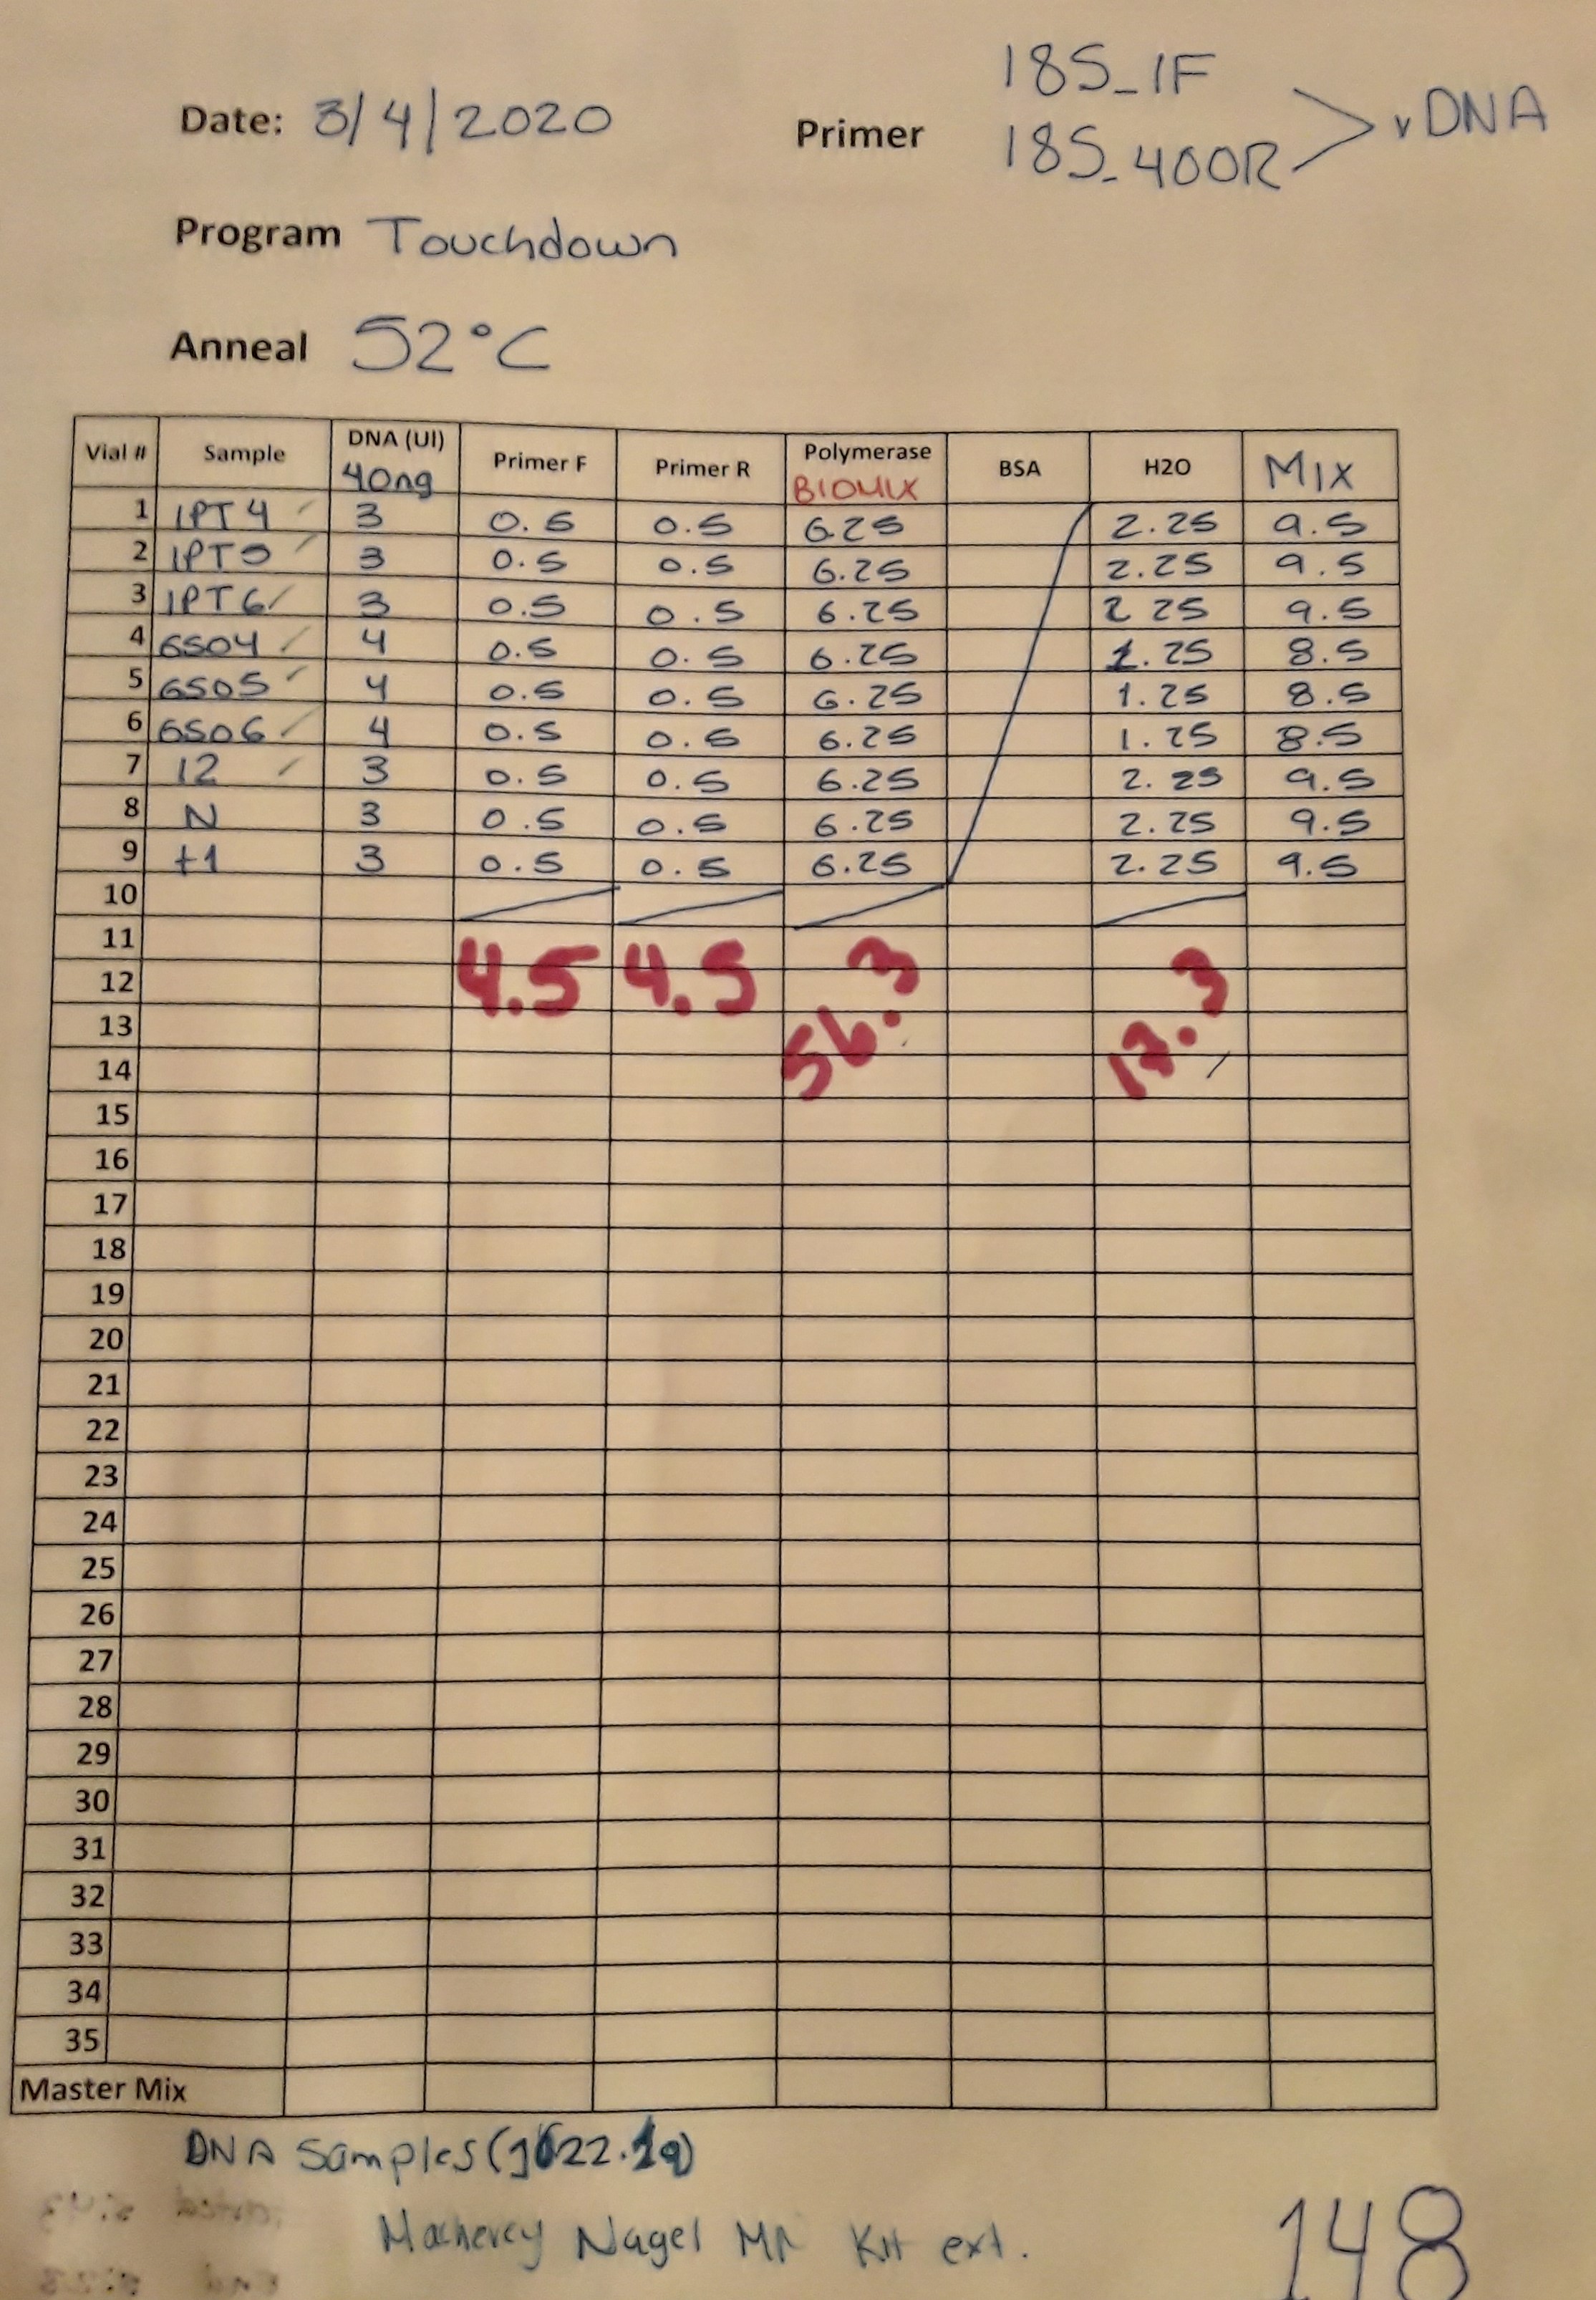 18S_1F
Date: 3/4/2020 Primer > vDNA
18S_400R
Program Touchdown
Anneal 52°C
Vial # Sample DNA (Ul) 40ng Primer F Primer R Polymerase BIOMIX BSA H2O MIX
1 IPT4 3 0.5 0.5 6.25 2.25 9.5
2 IPT5 3 0.5 0.5 6.25 2.25 9.5
3 IPT6 3 0.5 0.5 6.25 2 25 9.5
4 6S04 4 0.5 0.5 6.25 1.25 8.5
5 6S05 4 0.5 0.5 6.25 1.25 8.5
6 6S06 4 0.5 0.5 6.25 1.25 8.5
7 12 3 0.5 0.5 6.25 2.25 9.5
8 N 3 0.5 0.5 6.25 2.25 9.5
9 +1 3 0.5 0.5 6.25 2.25 9.5
10
11
12 4.5 4.5 56.3 17.3
13
14
15
16
17
18
19
20
21
22
23
24
25
26
27
28
29
30
31
32
33
34
35
Master Mix
DNA Samples
Macherey Nagel Kit ext.
148